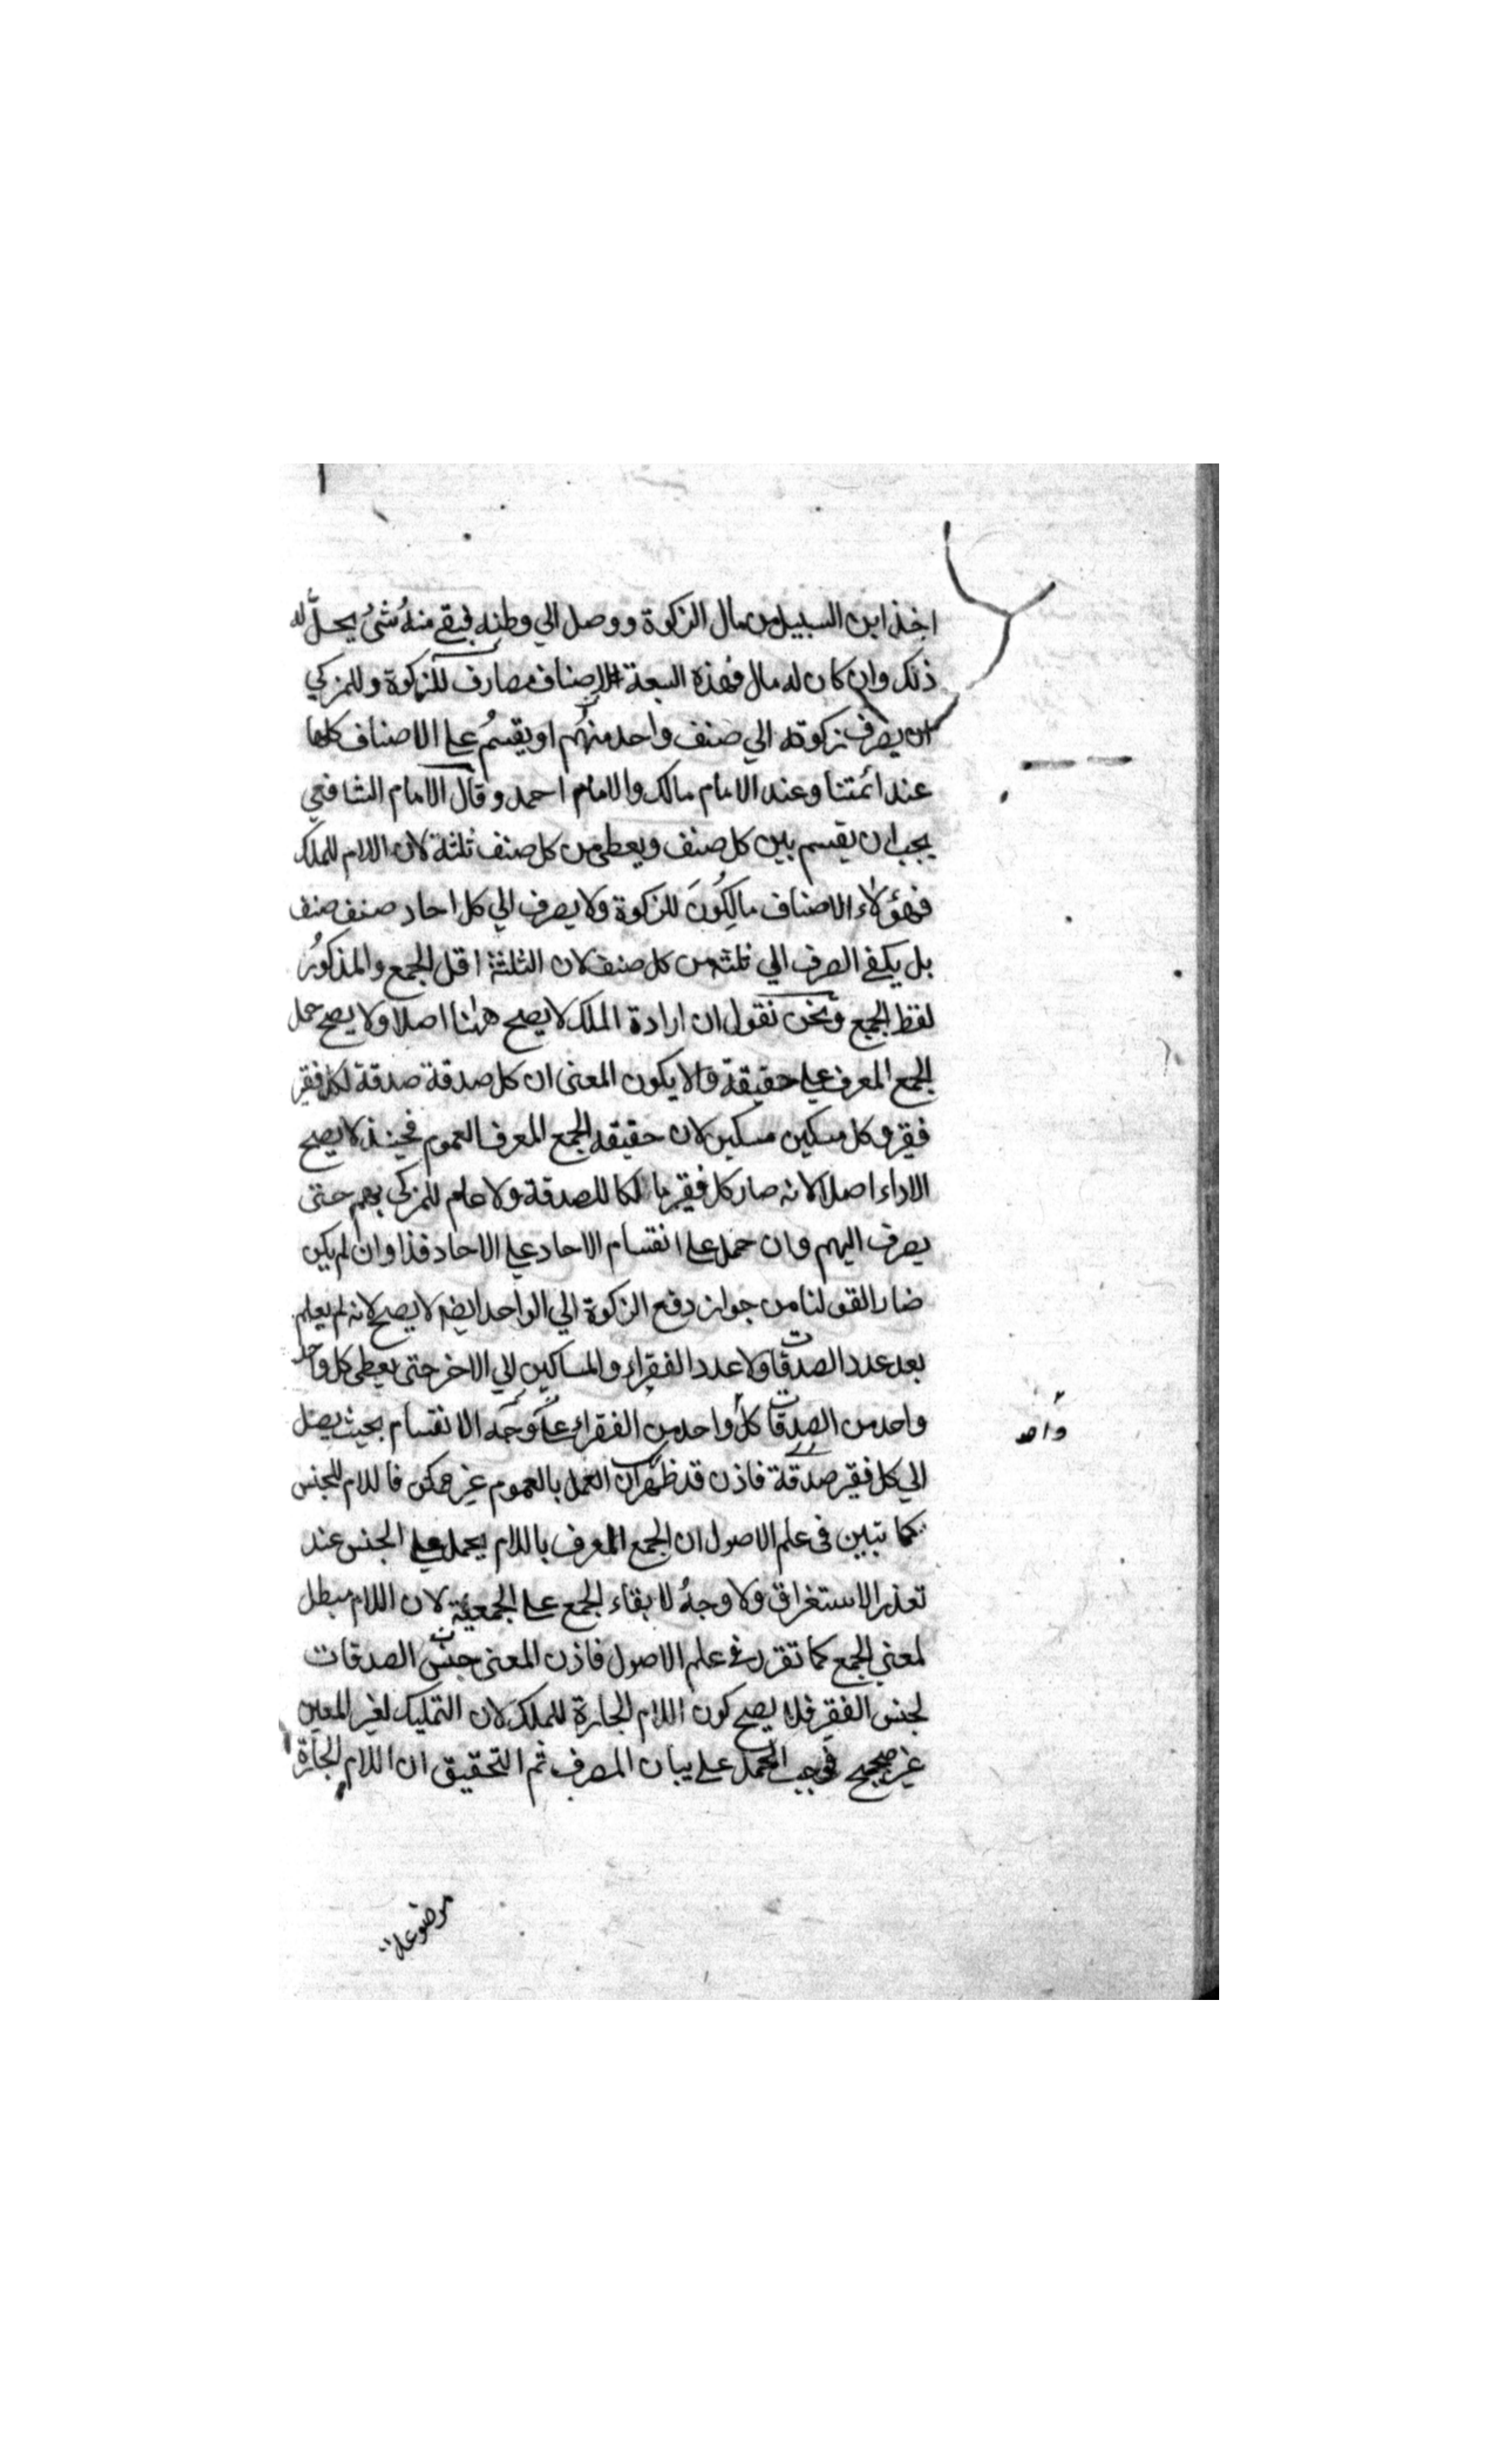 اخذ ابن السبيل من مال الزكوة ووصل الي وطنه فبقي منهُ شئُ يحلُّ له
ذلك وان كان له مال فهذه السبعة الاصناف مصارف للزكوة وللمزكي
ان يصرف زكوته الي صنف واحد منهُم او يقسمُ علي الاصناف كلها
عند ائمتنا وعند الامام مالك والامام احمد وقال الامام الشافعي
يجب ان يقسم بين كل صنف ويعطي من كل صنف ثلثة لان اللام للملك
فهؤلاء الاصناف مالِكُونَ للزكوة ولا يصرف الي كل احاد صنف صنف
بل يكفي الصرف الي ثلثة من كل صنف لان الثلثة اقل الجمع والمذكورُ
لفظ الجمع ونحن نقول ان ارادة الملك لا يصح ههنا اصلا ولا يصح حمل
الجمع المعرف علي حقيقة والا يكون المعنى ان كل صدقة صدقة لكل فقير
فقير وكل مسكين مسكين لان حقيقه الجمع المعرف العموم فحينئذ لا يصح
الاداء اصلا لانه صار كل فقير مالكا للصدقة ولا علم للمزكي بهم حتى
يصرف اليهم وان حمل علي انقسام الاحاد علي الاحاد فذا وان لم يكن
ضارا لقولنا من جواز دفع الزكوة الي الواحد ايضا لا يصح لانه لم يعلم
بعد عدد الصدقات ولا عدد الفقراء والمساكين الي الاخر حتى يعطى كل واحد
واحد من الصدقات كل واحد من الفقراء علي وجه الانقسام بحيث يصل
واحد
الي كل فقير صدقة فاذن قد ظهر ان العمل بالعموم غير ممكن فاللام للجنس
كما تبين في علم الاصول ان الجمع المعرف باللام يحمل علي الجنس عند
تعذر الاستغراق ولا وجهُ لابقاء الجمع علي الجمعية لان اللام مبطل
لمعني الجمع كما تقرر في علم الاصول فاذن المعنى جنس الصدقات
لجنس الفقير فلا يصح كون اللام الجارة للملك لان التمليك لغير المعين
غير صحيح فوجب الحمل علي بيان المصرف ثم التحقيق ان اللام الجارة
موضوعة